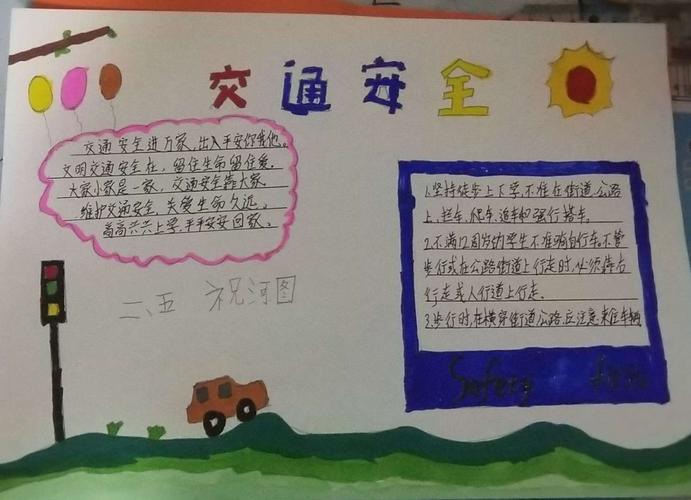 交通安全
交通安全进万家,出入平安你我他。
文明交通安全在,留住生命留住爱。
大家小家是一家,交通安全靠大家。
维护交通安全,关爱生命久远。
高高兴兴上学,平平安安回家。
二、五 祝河图
1.坚持徒步上下学,不准在街道、公路
上、拦车、爬车、追车和强行搭车。
2.不满12周岁的学生不准骑自行车。不管
步行或在公路街道上行走时,必须靠右
行走或人行道上行走。
3.步行时,在横穿街道公路,应注意来往车辆
Safety first